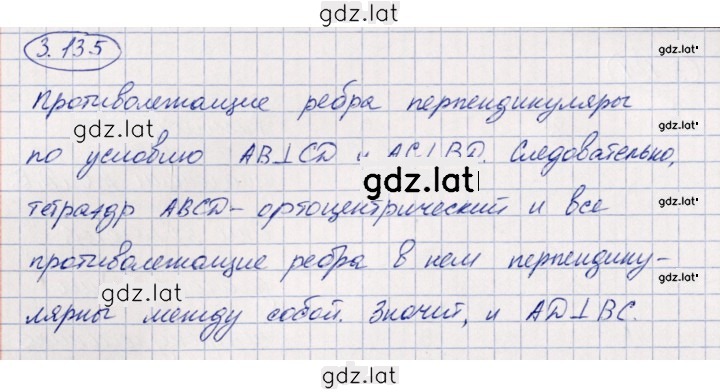 gdz.lat
3.135
gdz.lat
Противолежащие ребра перпендикуляры
gdz.lat
по условию AB⊥CD и AC⊥BD. Следовательно,
gdz.lat
gdz.lat
тетраэдр ABCD - ортоцентрический и все
gdz.lat
противолежащие ребра в нем перпендику-
gdz.lat
gdz.lat
лярны между собой. Значит, и AD⊥BC.
gdz.lat